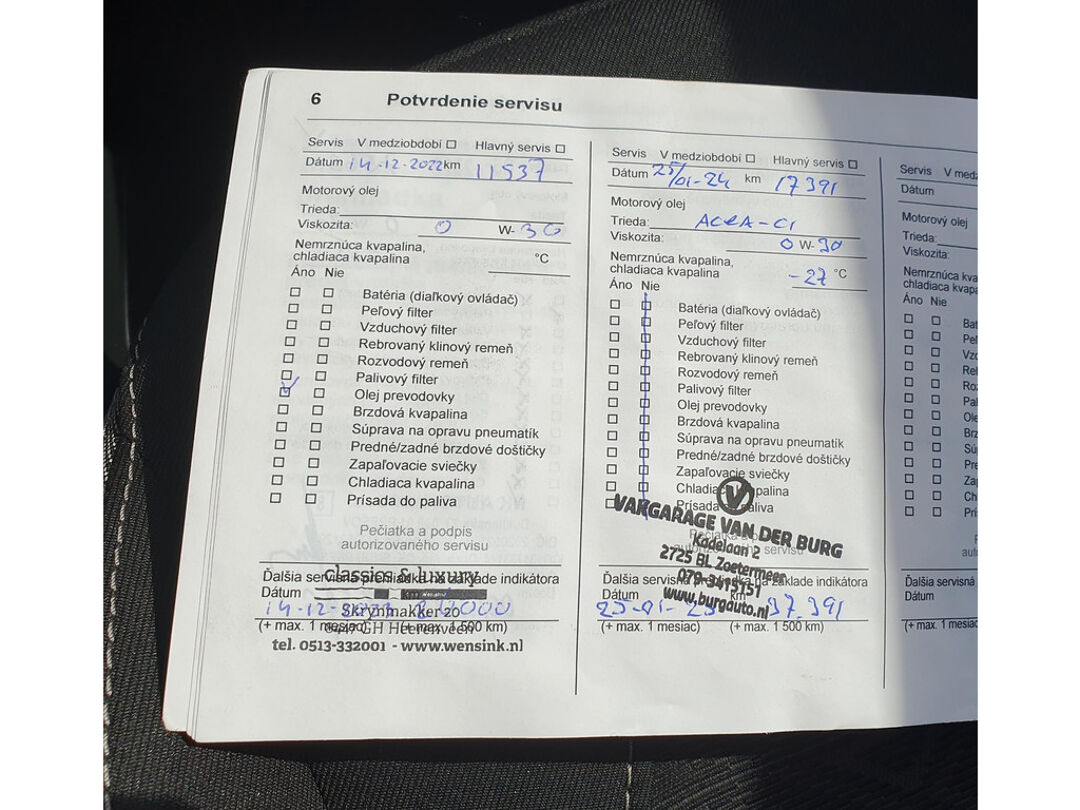 6 Potvrdenie servisu
Servis V medziobdobí ☐ Hlavný servis ☐
Dátum 14-12-2022 km 11537
Motorový olej
Trieda:
Viskozita: 0 W-30
Nemrznúca kvapalina,
chladiaca kvapalina °C
Áno Nie
Batéria (diaľkový ovládač)
Peľový filter
Vzduchový filter
Rebrovaný klinový remeň
Rozvodový remeň
Palivový filter
Olej prevodovky
Brzdová kvapalina
Súprava na opravu pneumatík
Predné/zadné brzdové doštičky
Zapaľovacie sviečky
Chladiaca kvapalina
Prísada do paliva
Pečiatka a podpis
autorizovaného servisu
classics & luxury
Ďalšia servisná prehliadka na základe indikátora
Dátum
14-12-2023
Skrynmakker 20
(+ max. 1 mesiac) (+ max. 1 500 km)
GH Heerenveen
tel. 0513-332001 - www.wensink.nl
Servis V medziobdobí ☐ Hlavný servis ☐
Dátum 25/01-24 km 17391
Motorový olej
Trieda: ACEA-C1
Viskozita: 0 W-30
Nemrznúca kvapalina,
chladiaca kvapalina -27 °C
Áno Nie
Batéria (diaľkový ovládač)
Peľový filter
Vzduchový filter
Rebrovaný klinový remeň
Rozvodový remeň
Palivový filter
Olej prevodovky
Brzdová kvapalina
Súprava na opravu pneumatík
Predné/zadné brzdové doštičky
Zapaľovacie sviečky
Chladiaca kvapalina
Prísada do paliva
VAKGARAGE VAN DER BURG
Kadelaan 2
2725 BL Zoetermeer
079-3415151
www.burgauto.nl
Ďalšia servisná prehliadka na základe indikátora
Dátum km
25-01-25 37.391
(+ max. 1 mesiac) (+ max. 1 500 km)
Servis V medz
Dátum
Motorový olej
Trieda:
Viskozita:
Nemrznúca kva
chladiaca kvapa
Áno Nie
Bat
Peľ
Vzd
Reb
Ro
Pal
Ole
Brz
Sú
Pre
Za
Ch
Prí
aut
Ďalšia servisná
Dátum
(+ max. 1 mesiac